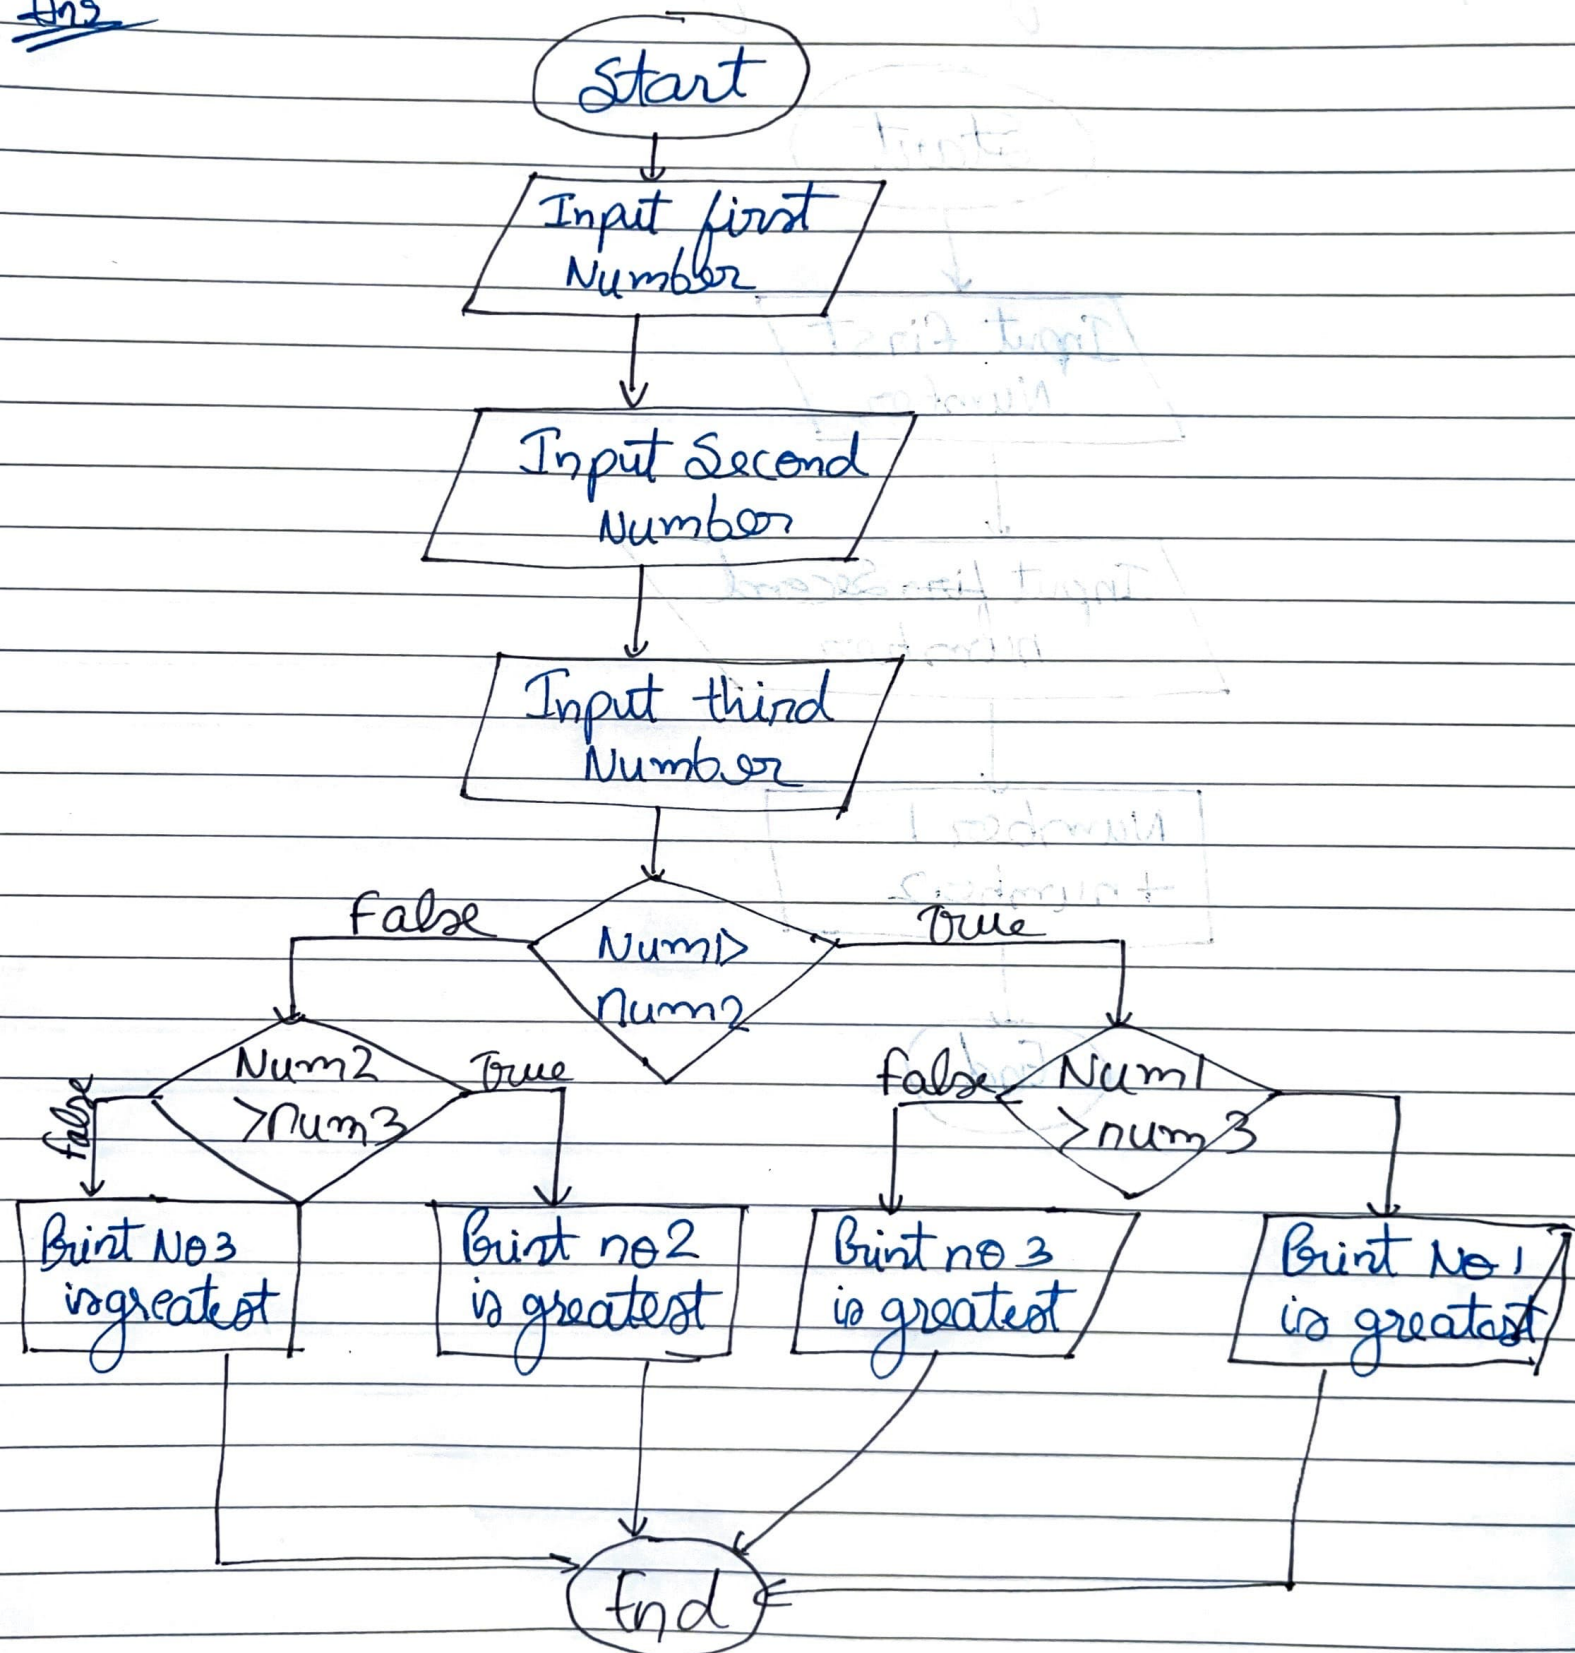 Ans
Start
Input first
Number
Input Second
Number
Input third
Number
False
Num1>
num2
True
Num2
>num3
True
false
false
Num1
>num3
Print No3
is greatest
Print no 2
is greatest
Print no 3
is greatest
Print No 1
is greatest
End